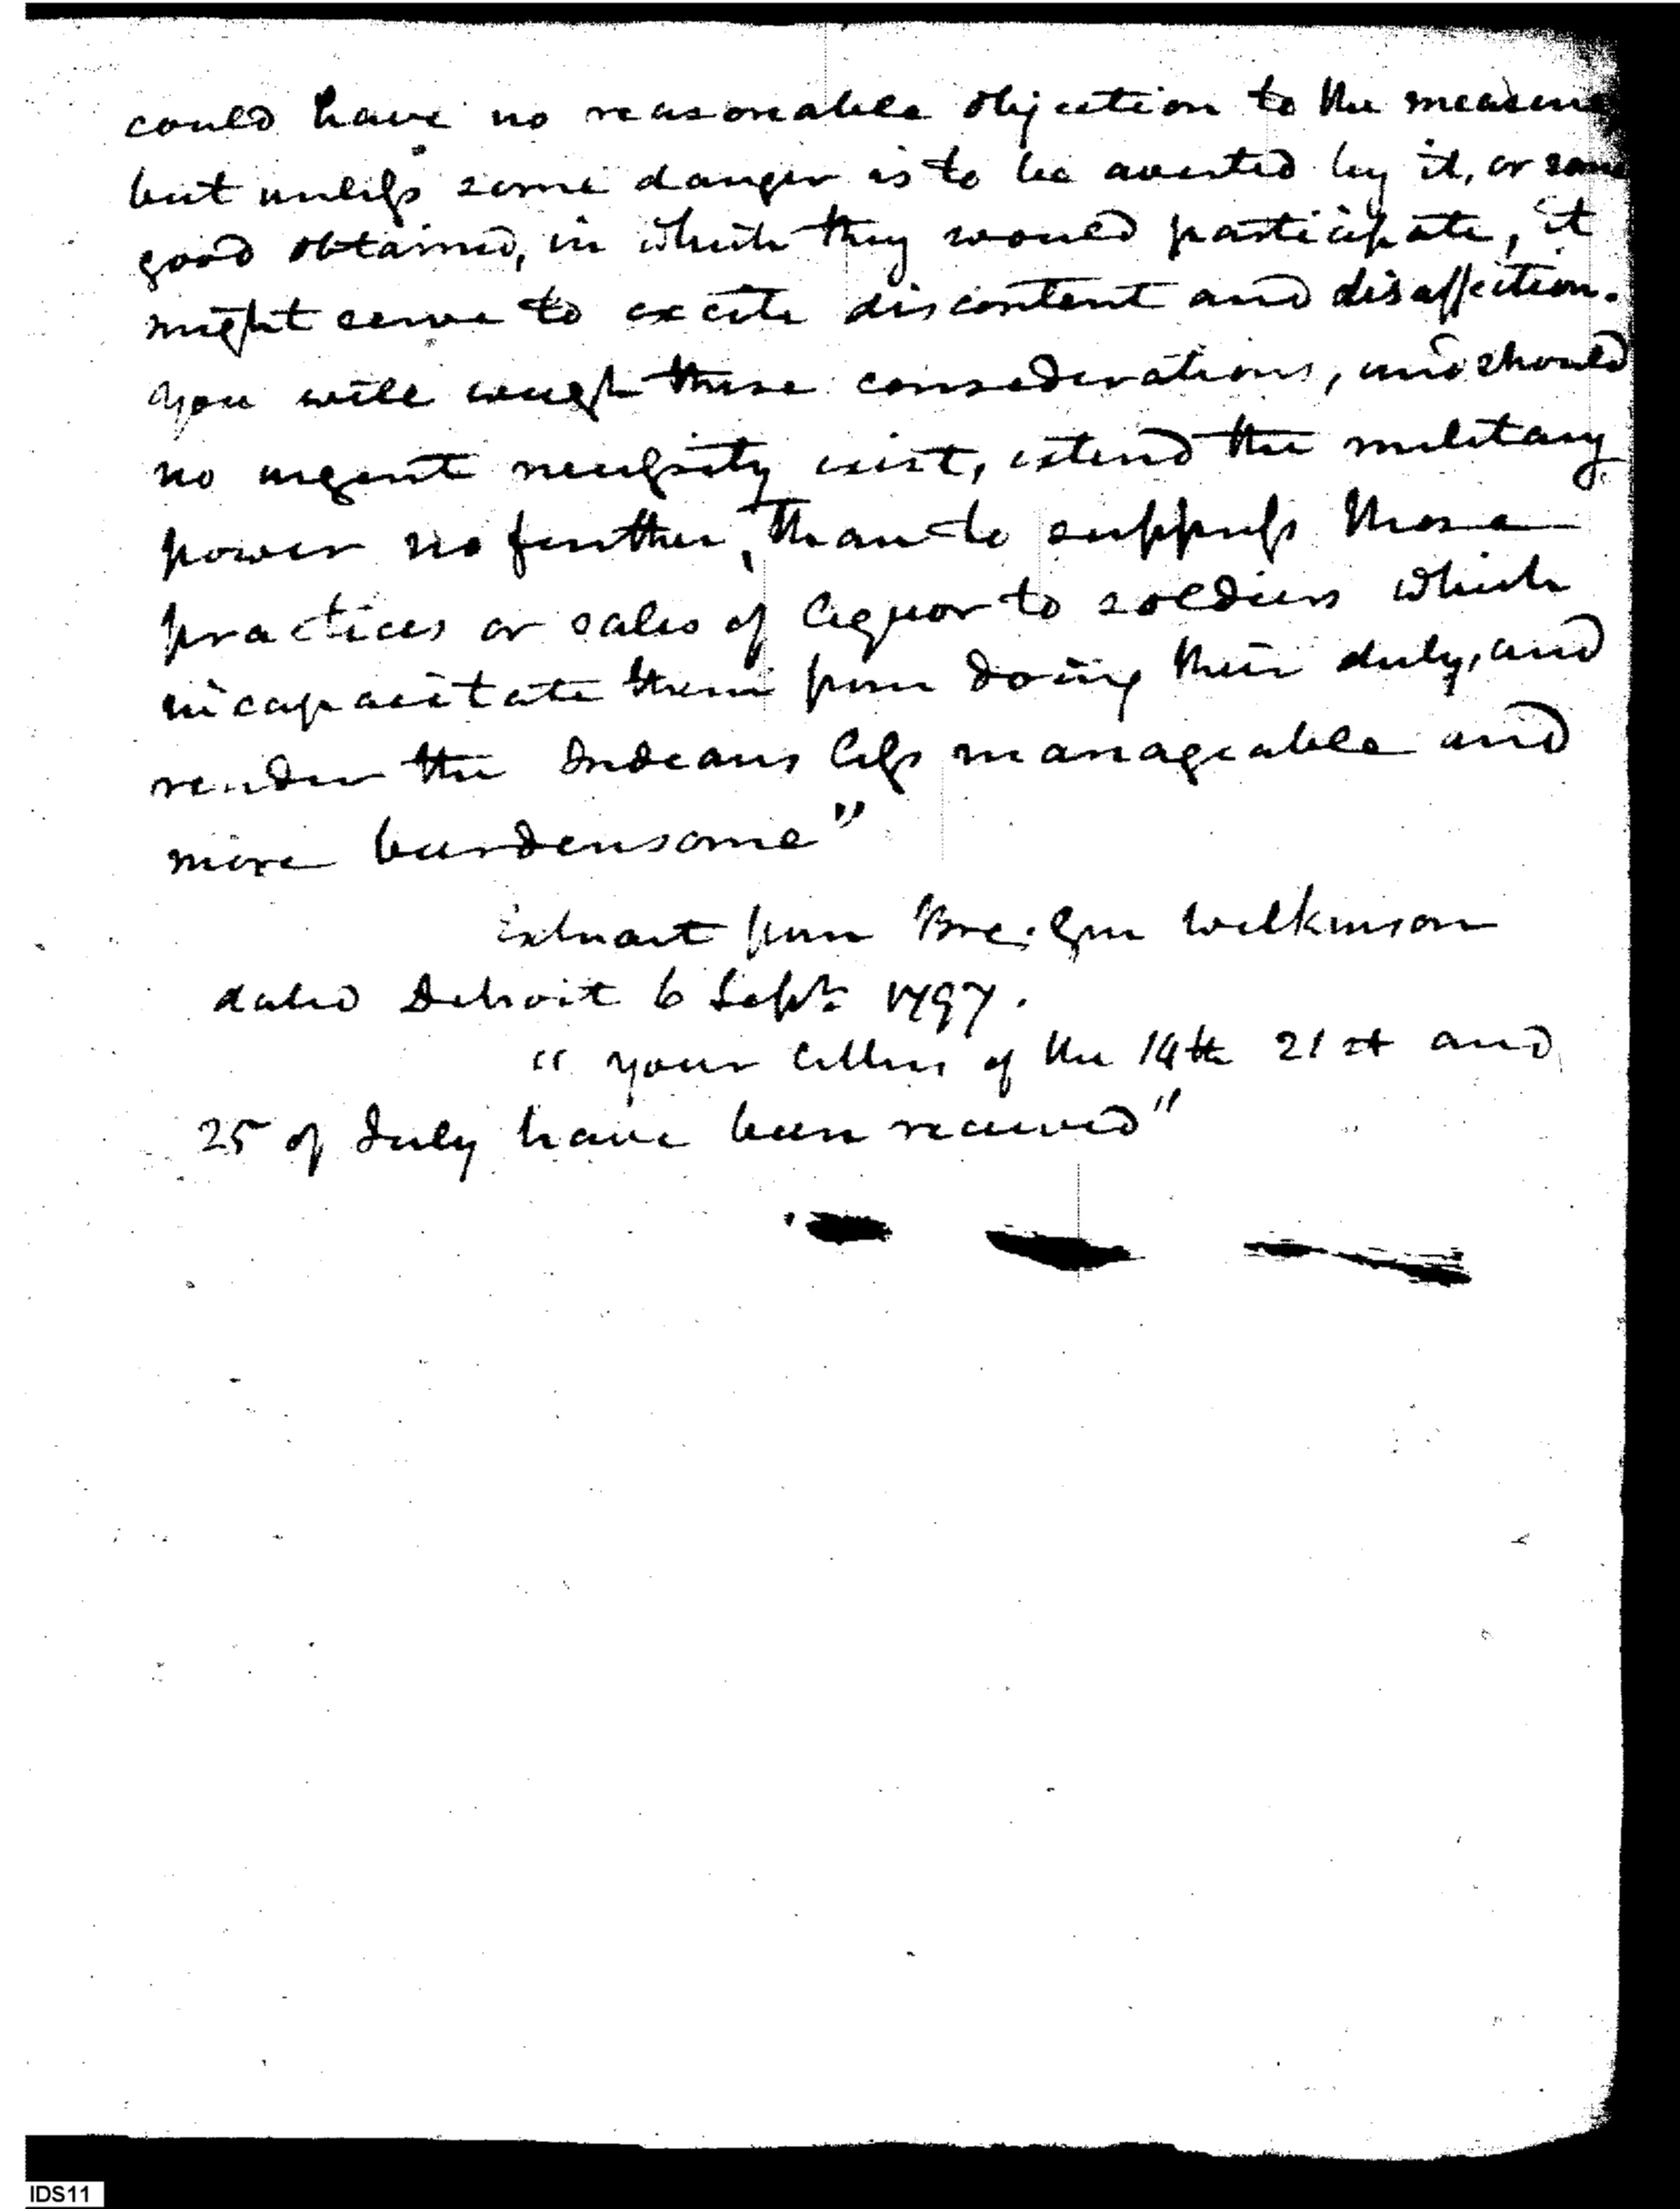 could have no reasonable objection to the measure
but unless some danger is to be averted by it, or some
good obtained, in which they would participate, it
might serve to excite discontent and disaffection.
you will weigh these considerations, and should
no urgent necessity exist, extend the military
power no further, than to suppress those
practices or sales of liquor to soldiers which
incapacitate them from doing their duty, and
render the Indians less manageable and
more burdensome"
Extract from Bre. Gen Wilkinson
dated Detroit 6 Sept. 1797.
"your letters of the 14th 21st and
25 of July have been received"
IDS11